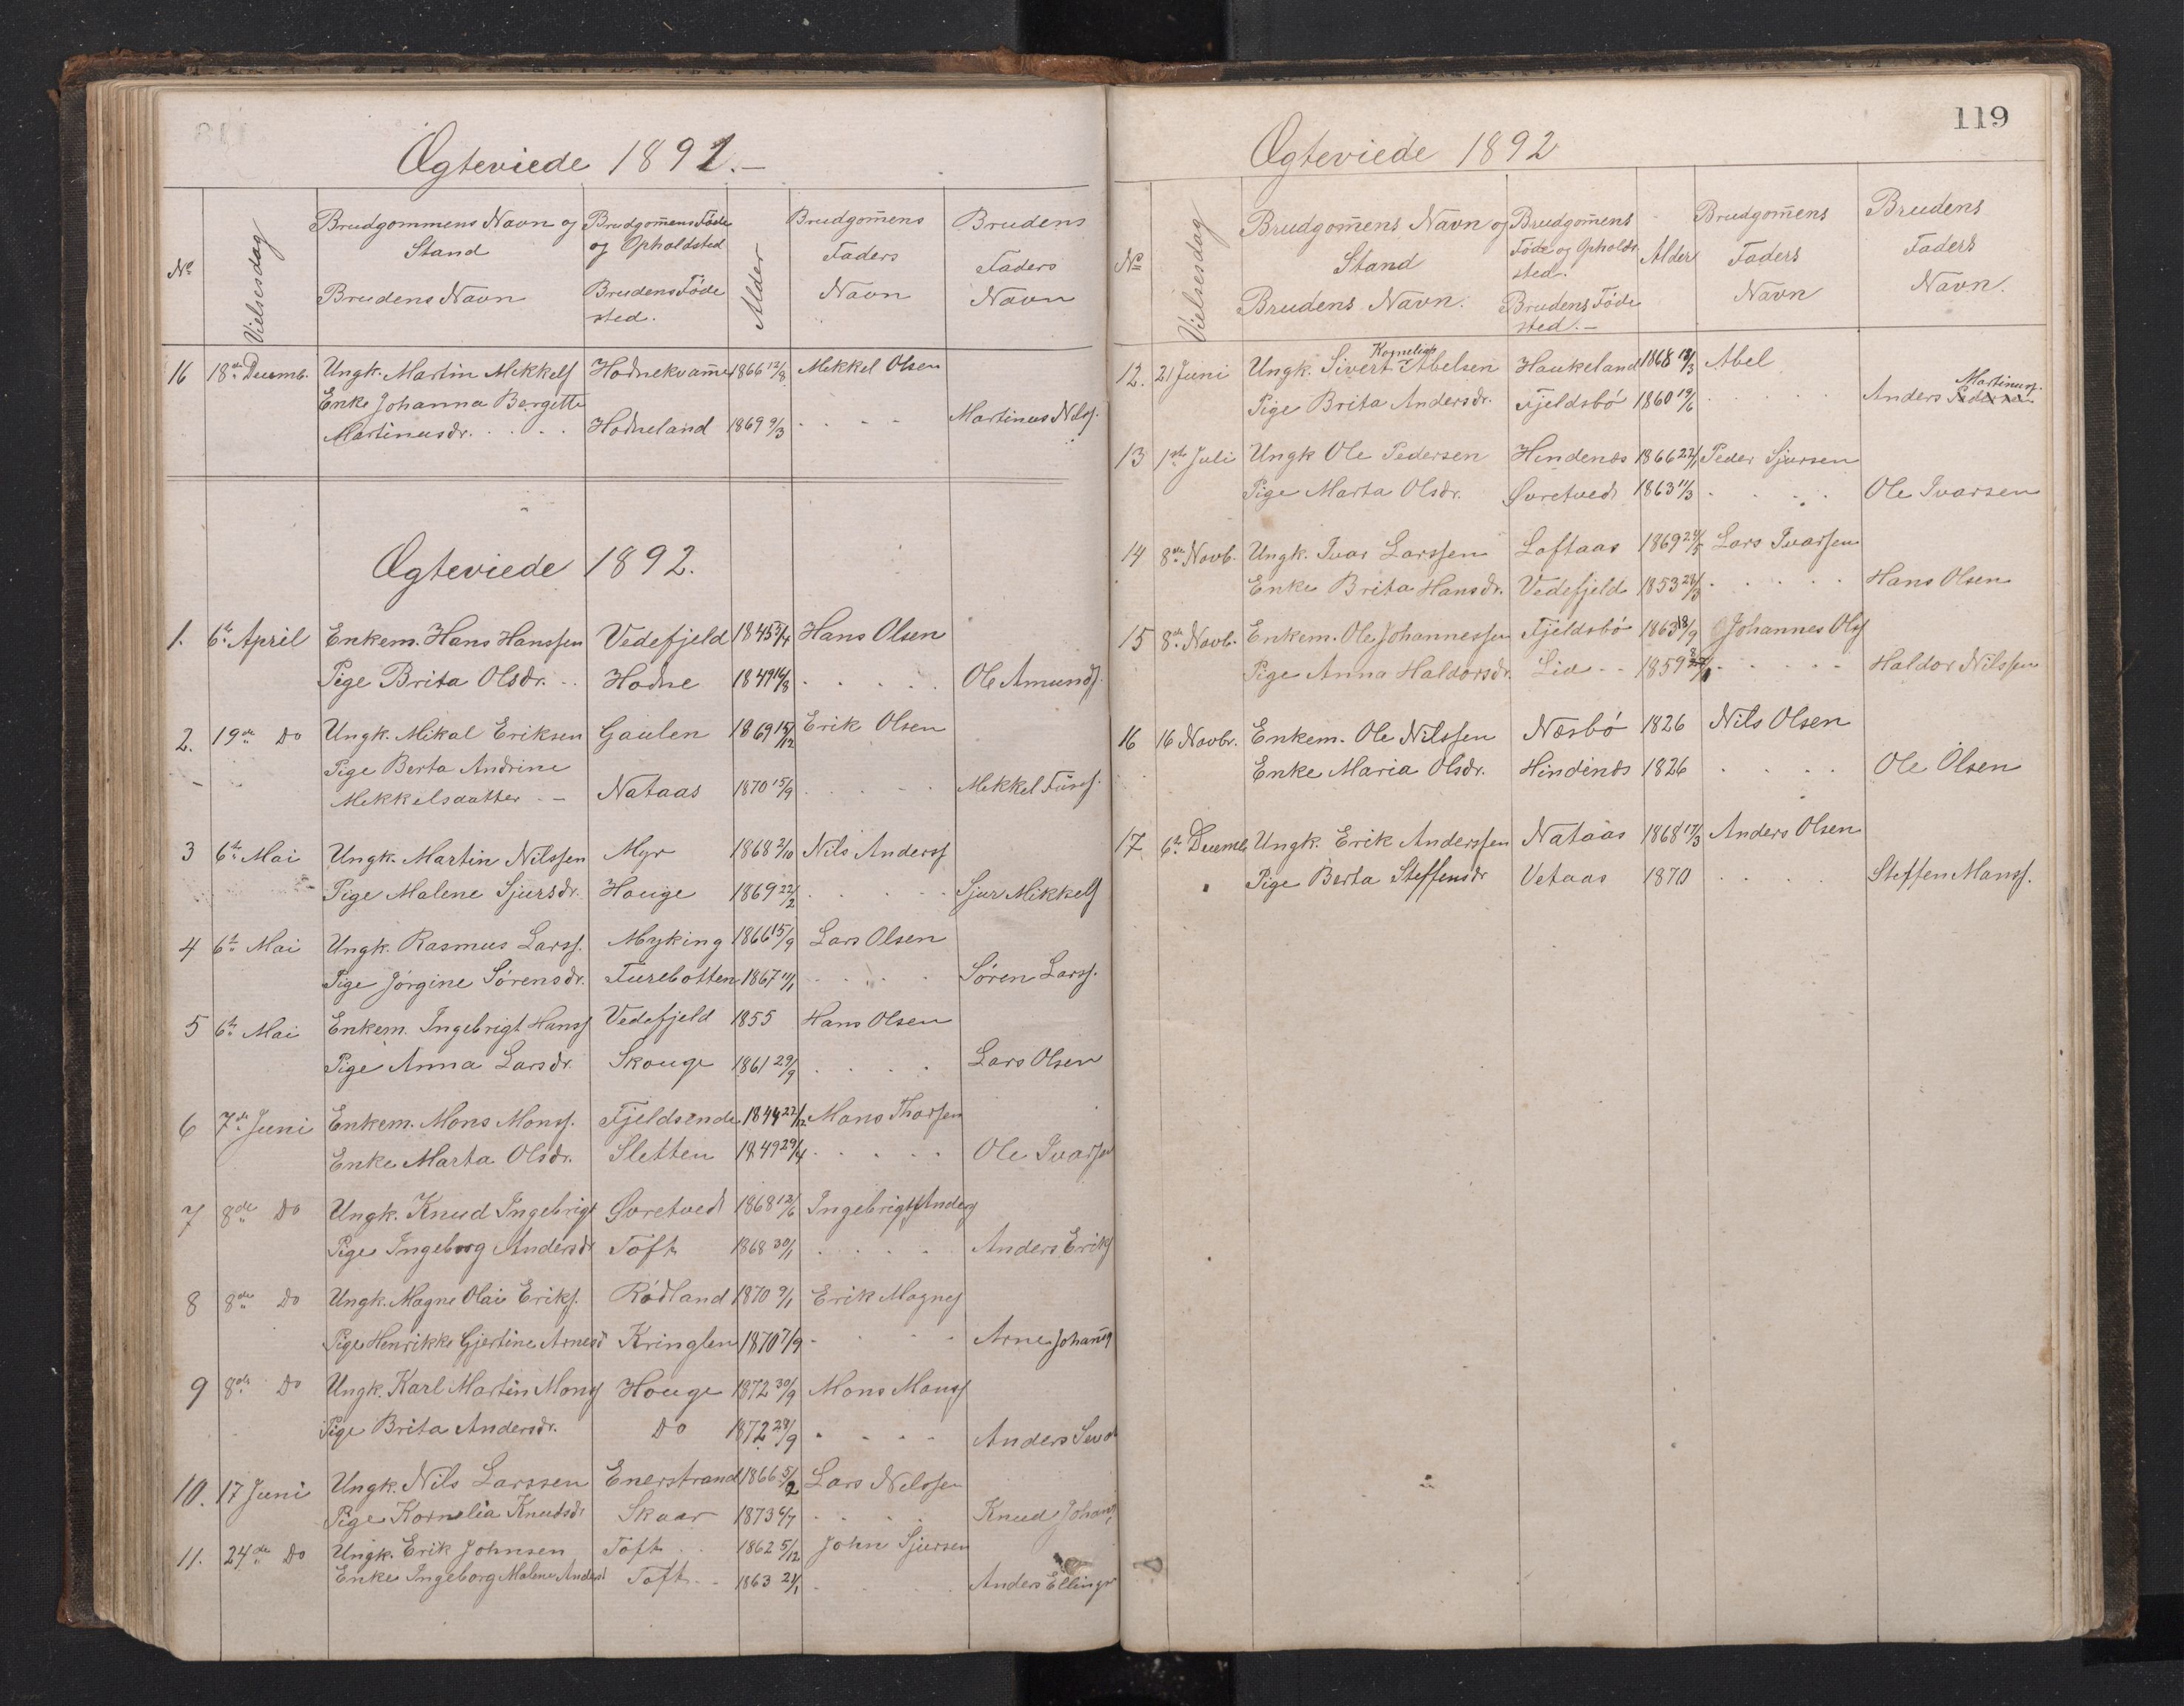 Ægteviede 1891.-
No
Vielsesdag
Brudgommens Navn og Stand
Brudens Navn
Brudgom̅ens Föde og Opholdsted
Brudens Föde sted.
Alder
Brudgom̅ens Faders Navn
Brudens Faders Navn
16 18de Decemb. Ungk. Martin Mikkels Hodnekvam̅e 1866 12/8 Mikkel Olsen
Enke Johanna Bergitte
Martinusdr. . . . . Hodneland 1869 9/3 . . . . Martinus Nilss.
Ægteviede 1892.
1. 6te April Enkem. Hans Hanssen Vedefjeld 1845 5/4 Hans Olsen
Pige Brita Olsdr. . . Hodne 1849 16/8 . . . . . Ole Amunds.
2. 19de Do Ungk. Mikal Eriksen Gaulen 1869 15/12 Erik Olsen
Pige Berta Andrine
Mikkelsdatter . - Nataas 1870 15/9 . . . . . Mikkel
3 6te Mai Ungk. Martin Nilssen Myr 1868 2/10 Nils Anderss
Pige Malene Sjursdr. Houge 1869 22/2 . . . . . Sjur Mikkels
4 6te Mai Ungk. Rasmus Larss. Myking 1866 15/9 Lars Olsen
Pige Jörgine Sörensdr. Furebotten 1867 11/1 . . . . Sören Larss.
5 6te Mai Enkem. Ingebrigt Hanss Vedefjeld 1855 Hans Olsen
Pige Anna Larsdr. Skouge 1861 29/9 . . . . Lars Olsen
6 7de Juni Enkem. Mons Monss. Fjeldsende 1844 22/12 Mons Thorsen
Enke Marta Olsdr. Sletten 1849 29/4 . . . . . Ole Ivarsen
7 8de Do Ungk. Knud Ingebrigt Øvretvedt 1868 12/6 Ingebrigt Anders
Pige Ingeborg Andersdr Toft 1868 30/1 . . . . Anders Eriks
8 8de Do Ungk. Magne Olai Eriks. Rödland 1870 9/1 Erik Magnes
Pige Henrikke Gjertine Arnesd Kringlen 1870 7/9 . . . . Arne Johan̅es
9 8de Do Ungk. Karl Martin Mons Houge 1872 30/9 Mons Monss
Pige Brita Andersdr. Do 1872 28/9 . . . . Anders
10. 17 Juni Ungk. Nils Larssen Enerstrand 1866 5/2 Lars Nilssen
Pige Kornelia Knudsdr Skaar 1873 6/7 . . . . Knud Johans
11. 24de Do Ungk. Erik Johnsen Toft . . 1862 5/12 John Sjursen
Enke Ingeborg Malene Andersd Toft . . 1863 21/1 . . . . Anders Ellings
119
Ægteviede 1892
No
Vielsesdag
Brudgom̅ens Navn og Stand
Brudens Navn.
Brudgom̅ens Föde og Opholds sted.
Brudens Föde sted.-
Alder
Brudgom̅ens Faders Navn
Brudens Faders Navn.
Kornelius
12. 21 Juni Ungk. Sivert Abelsen Haukeland 1868 18/3 Abel
Martinuss.
Pige Brita Andersdr. Fjeldsbö 1860 19/6 . . . . . Anders
13 1ste Juli Ungk Ole Pedersen Hindenes 1866 22/1 Peder Sjursen
Pige Marta Olsdr. Øvretvedt 1863 11/3 . . . . Ole Ivarsen
14 8de Novb. Ungk. Ivar Larssen Loftaas 1869 24/5 Lars Ivarsen
Enke Brita Hansdr. Vedefjeld 1853 28/3 . . . . . Hans Olsen
15 8de Novb. Enkem. Ole Johannessen Fjeldsbö 1863 18/9 Johannes Ols
Pige Anna Haldorsdr. Lid . . 1859 . . . . . Haldor Nilssen
16 16 Novbr. Enkem. Ole Nilssen Næsbö 1826 Nils Olsen
Enke Maria Olsdr. Hindenes 1826 . . . . Ole Olsen
17 6te Decemb Ungk. Erik Anderssen Nataas 1868 17/3 Anders Olsen
Pige Berta Steffensdr Vetaas 1870 . . . . Steffen Manss.